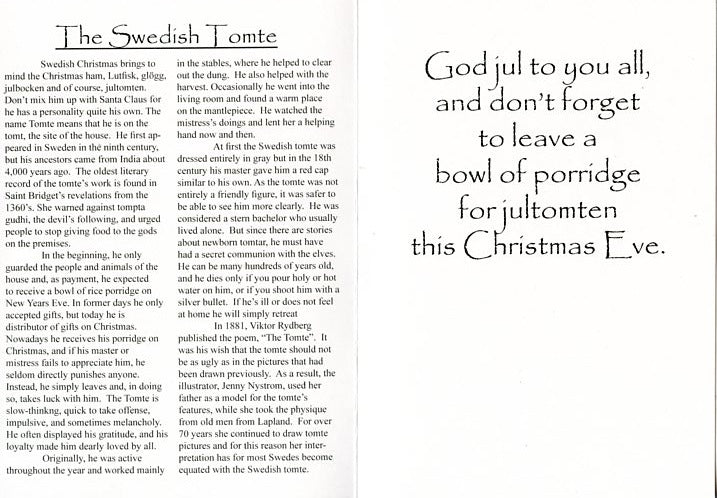 The Swedish Tomte
Swedish Christmas brings to
mind the Christmas ham, Lutfisk, glögg,
julbocken and of course, jultomten.
Don't mix him up with Santa Claus for
he has a personality quite his own. The
name Tomte means that he is on the
tomt, the site of the house. He first ap-
peared in Sweden in the ninth century,
but his ancestors came from India about
4,000 years ago. The oldest literary
record of the tomte's work is found in
Saint Bridget's revelations from the
1360's. She warned against tompta
gudhi, the devil's following, and urged
people to stop giving food to the gods
on the premises.
In the beginning, he only
guarded the people and animals of the
house and, as payment, he expected
to receive a bowl of rice porridge on
New Years Eve. In former days he only
accepted gifts, but today he is
distributor of gifts on Christmas.
Nowadays he receives his porridge on
Christmas, and if his master or
mistress fails to appreciate him, he
seldom directly punishes anyone.
Instead, he simply leaves and, in doing
so, takes luck with him. The Tomte is
slow-thinkng, quick to take offense,
impulsive, and sometimes melancholy.
He often displayed his gratitude, and his
loyalty made him dearly loved by all.
Originally, he was active
throughout the year and worked mainly
in the stables, where he helped to clear
out the dung. He also helped with the
harvest. Occasionally he went into the
living room and found a warm place
on the mantlepiece. He watched the
mistress's doings and lent her a helping
hand now and then.
At first the Swedish tomte was
dressed entirely in gray but in the 18th
century his master gave him a red cap
similar to his own. As the tomte was not
entirely a friendly figure, it was safer to
be able to see him more clearly. He was
considered a stern bachelor who usually
lived alone. But since there are stories
about newborn tomtar, he must have
had a secret communion with the elves.
He can be many hundreds of years old,
and he dies only if you pour holy or hot
water on him, or if you shoot him with a
silver bullet. If he's ill or does not feel
at home he will simply retreat
In 1881, Viktor Rydberg
published the poem, "The Tomte". It
was his wish that the tomte should not
be as ugly as in the pictures that had
been drawn previously. As a result, the
illustrator, Jenny Nystrom, used her
father as a model for the tomte's
features, while she took the physique
from old men from Lapland. For over
70 years she continued to draw tomte
pictures and for this reason her inter-
pretation has for most Swedes become
equated with the Swedish tomte.
God jul to you all,
and don't forget
to leave a
bowl of porridge
for jultomten
this Christmas Eve.